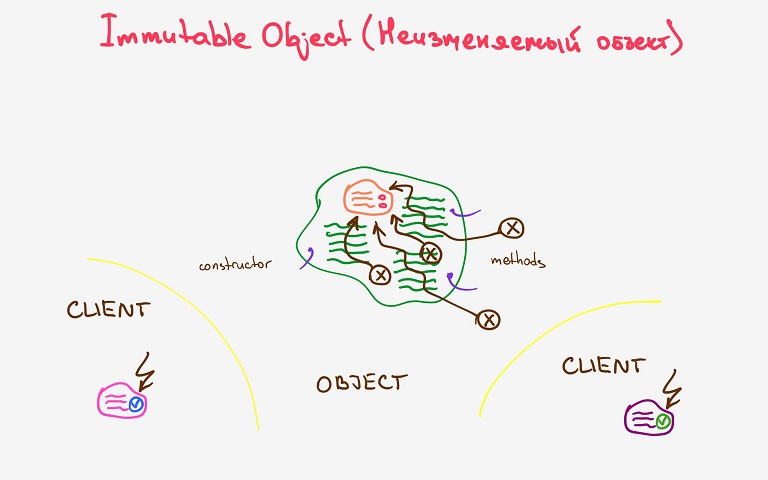 Immutable Object (Неизменяемый объект)
constructor
methods
CLIENT
CLIENT
OBJECT